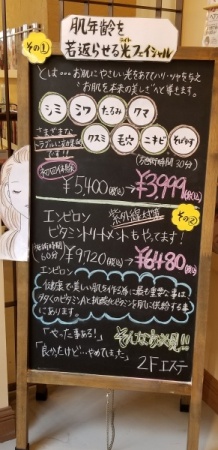 その①
肌年齢を
若返らせる光フェイシャル
とは…お肌にやさしい光をあてハリ・ツヤを与え
お肌を本来の美しさへと導きます。
シミ シワ たるみ クマ
さまざまな
トラブルに
クスミ 毛穴 ニキビ そばかす
(施術時間30分)
初回体験
¥5,400(税込)→¥3999(税込)
エンビロン 紫外線対策 その②
ビタミントリートメントもやってます!
(施術時間60分) ¥9720(税込)→¥6480(税込)
エンビロン
健康で美しい肌を作る為に最も重要な事は
多くのビタミンAと抗酸化ビタミンを肌に供給する事
にあります。
「やった事ある!」
「良かったけど…やめてしまった」
2Fエステ